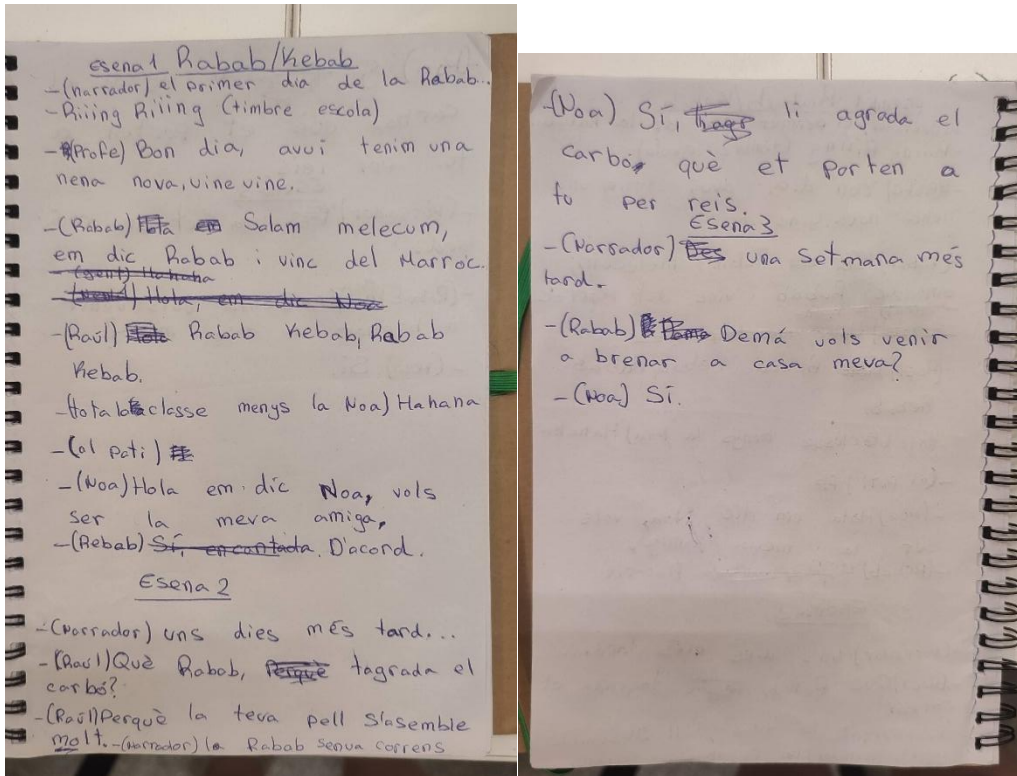 Esena 1 Rabab/Kebab
-(narrador) el primer dia de la Rabab...
-Riiing Riiing (timbre escola)
-(Profe) Bon dia, avui tenim una
nena nova, vine vine.
-(Rabab) Salam melecum,
em dic Rabab i vinc del Marroc.
-(gent) Hahaha
-Hola, em dic Noa
-(Raúl) Rabab Kebab, Rabab
Kebab.
-(tota la classe menys la Noa) Hahaha
-(al pati)
-(Noa) Hola em dic Noa, vols
ser la meva amiga,
-(Rebab) Sí, encantada. D'acord.
Esena 2
-(Narrador) uns dies més tard...
-(Raúl) Què Rabab, Perquè tagrada el
carbó?
-(Raúl) Perquè la teva pell s'asemble
molt. -(Narrador) la Rabab senva correns
-(Noa) Sí, li agrada el
carbó, què et porten a
tu per reis.
Esena 3
-(Narrador) una setmana més
tard.
-(Rabab) Demá vols venir
a brenar a casa meva?
-(Noa) Sí.